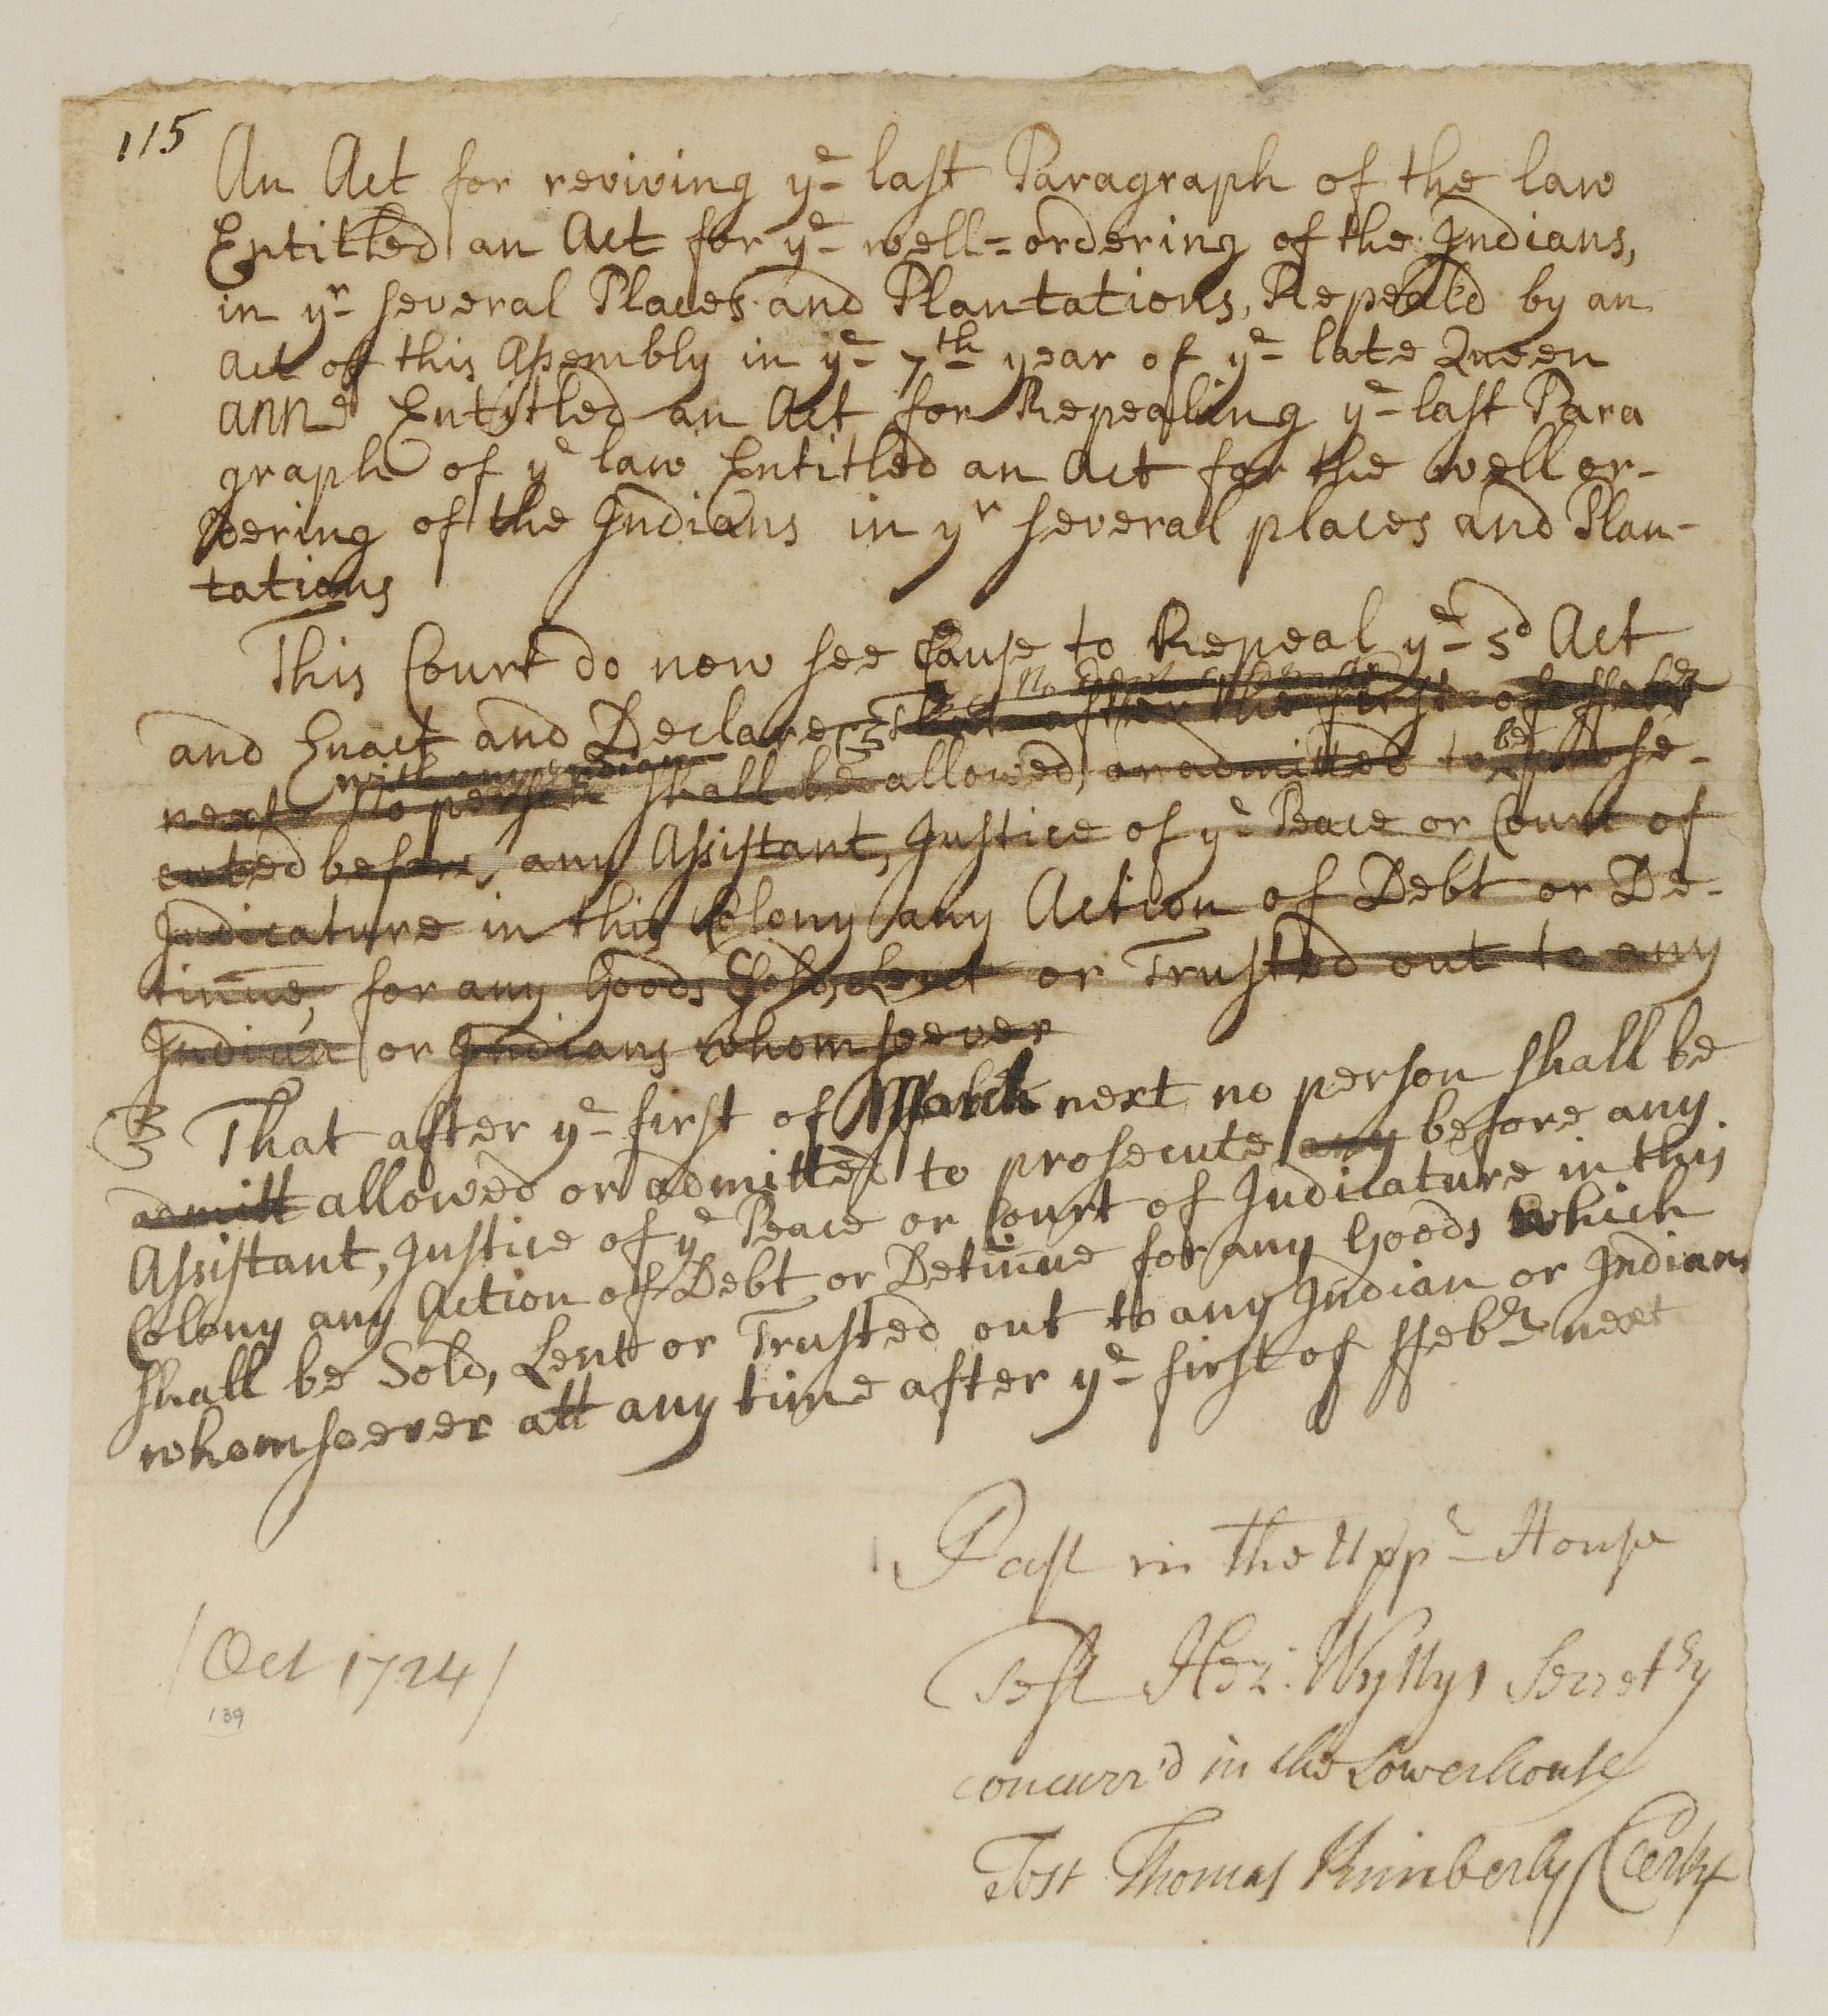 115
An Act for reviving ye last Paragraph of the law
Entitled an Act for ye well-ordering of the Indians,
in yr several Places and Plantations, Repeal'd by an
Act of this Assembly in ye 7th year of ye late Queen
Anne Entitled an Act for Repealing ye last Para
graph of ye law Entitled an Act for the well or-
dering of the Indians in yr several places and Plan-
tations
This Court do now see Cause to Repeal ye sd Act
and Enact and Declare That after the first of ffebr
with any Indian
next No person shall be allowed, or admitted to be prose-
cuted before any Assistant, Justice of ye Peace or Court of
Judicature in this Colony any Action of Debt or De-
tinue, for any Goods Sold, Lent or Trusted out to any
Indian or Indians whomsoever
That after ye first of March next no person shall be
admitt allowed or admitted to prosecute any before any
Assistant, Justice of ye Peace or Court of Judicature in this
Colony any Action of Debt or Detinue for any Goods which
shall be Sold, Lent or Trusted out to any Indian or Indians
whomsoever att any time after ye first of ffebr next
Past in the Uppr House
Test Hez: Wyllys Secretry
concurr'd in the Lowerhouse
Test Thomas Kimberly Clerk
/Oct 1724/
139